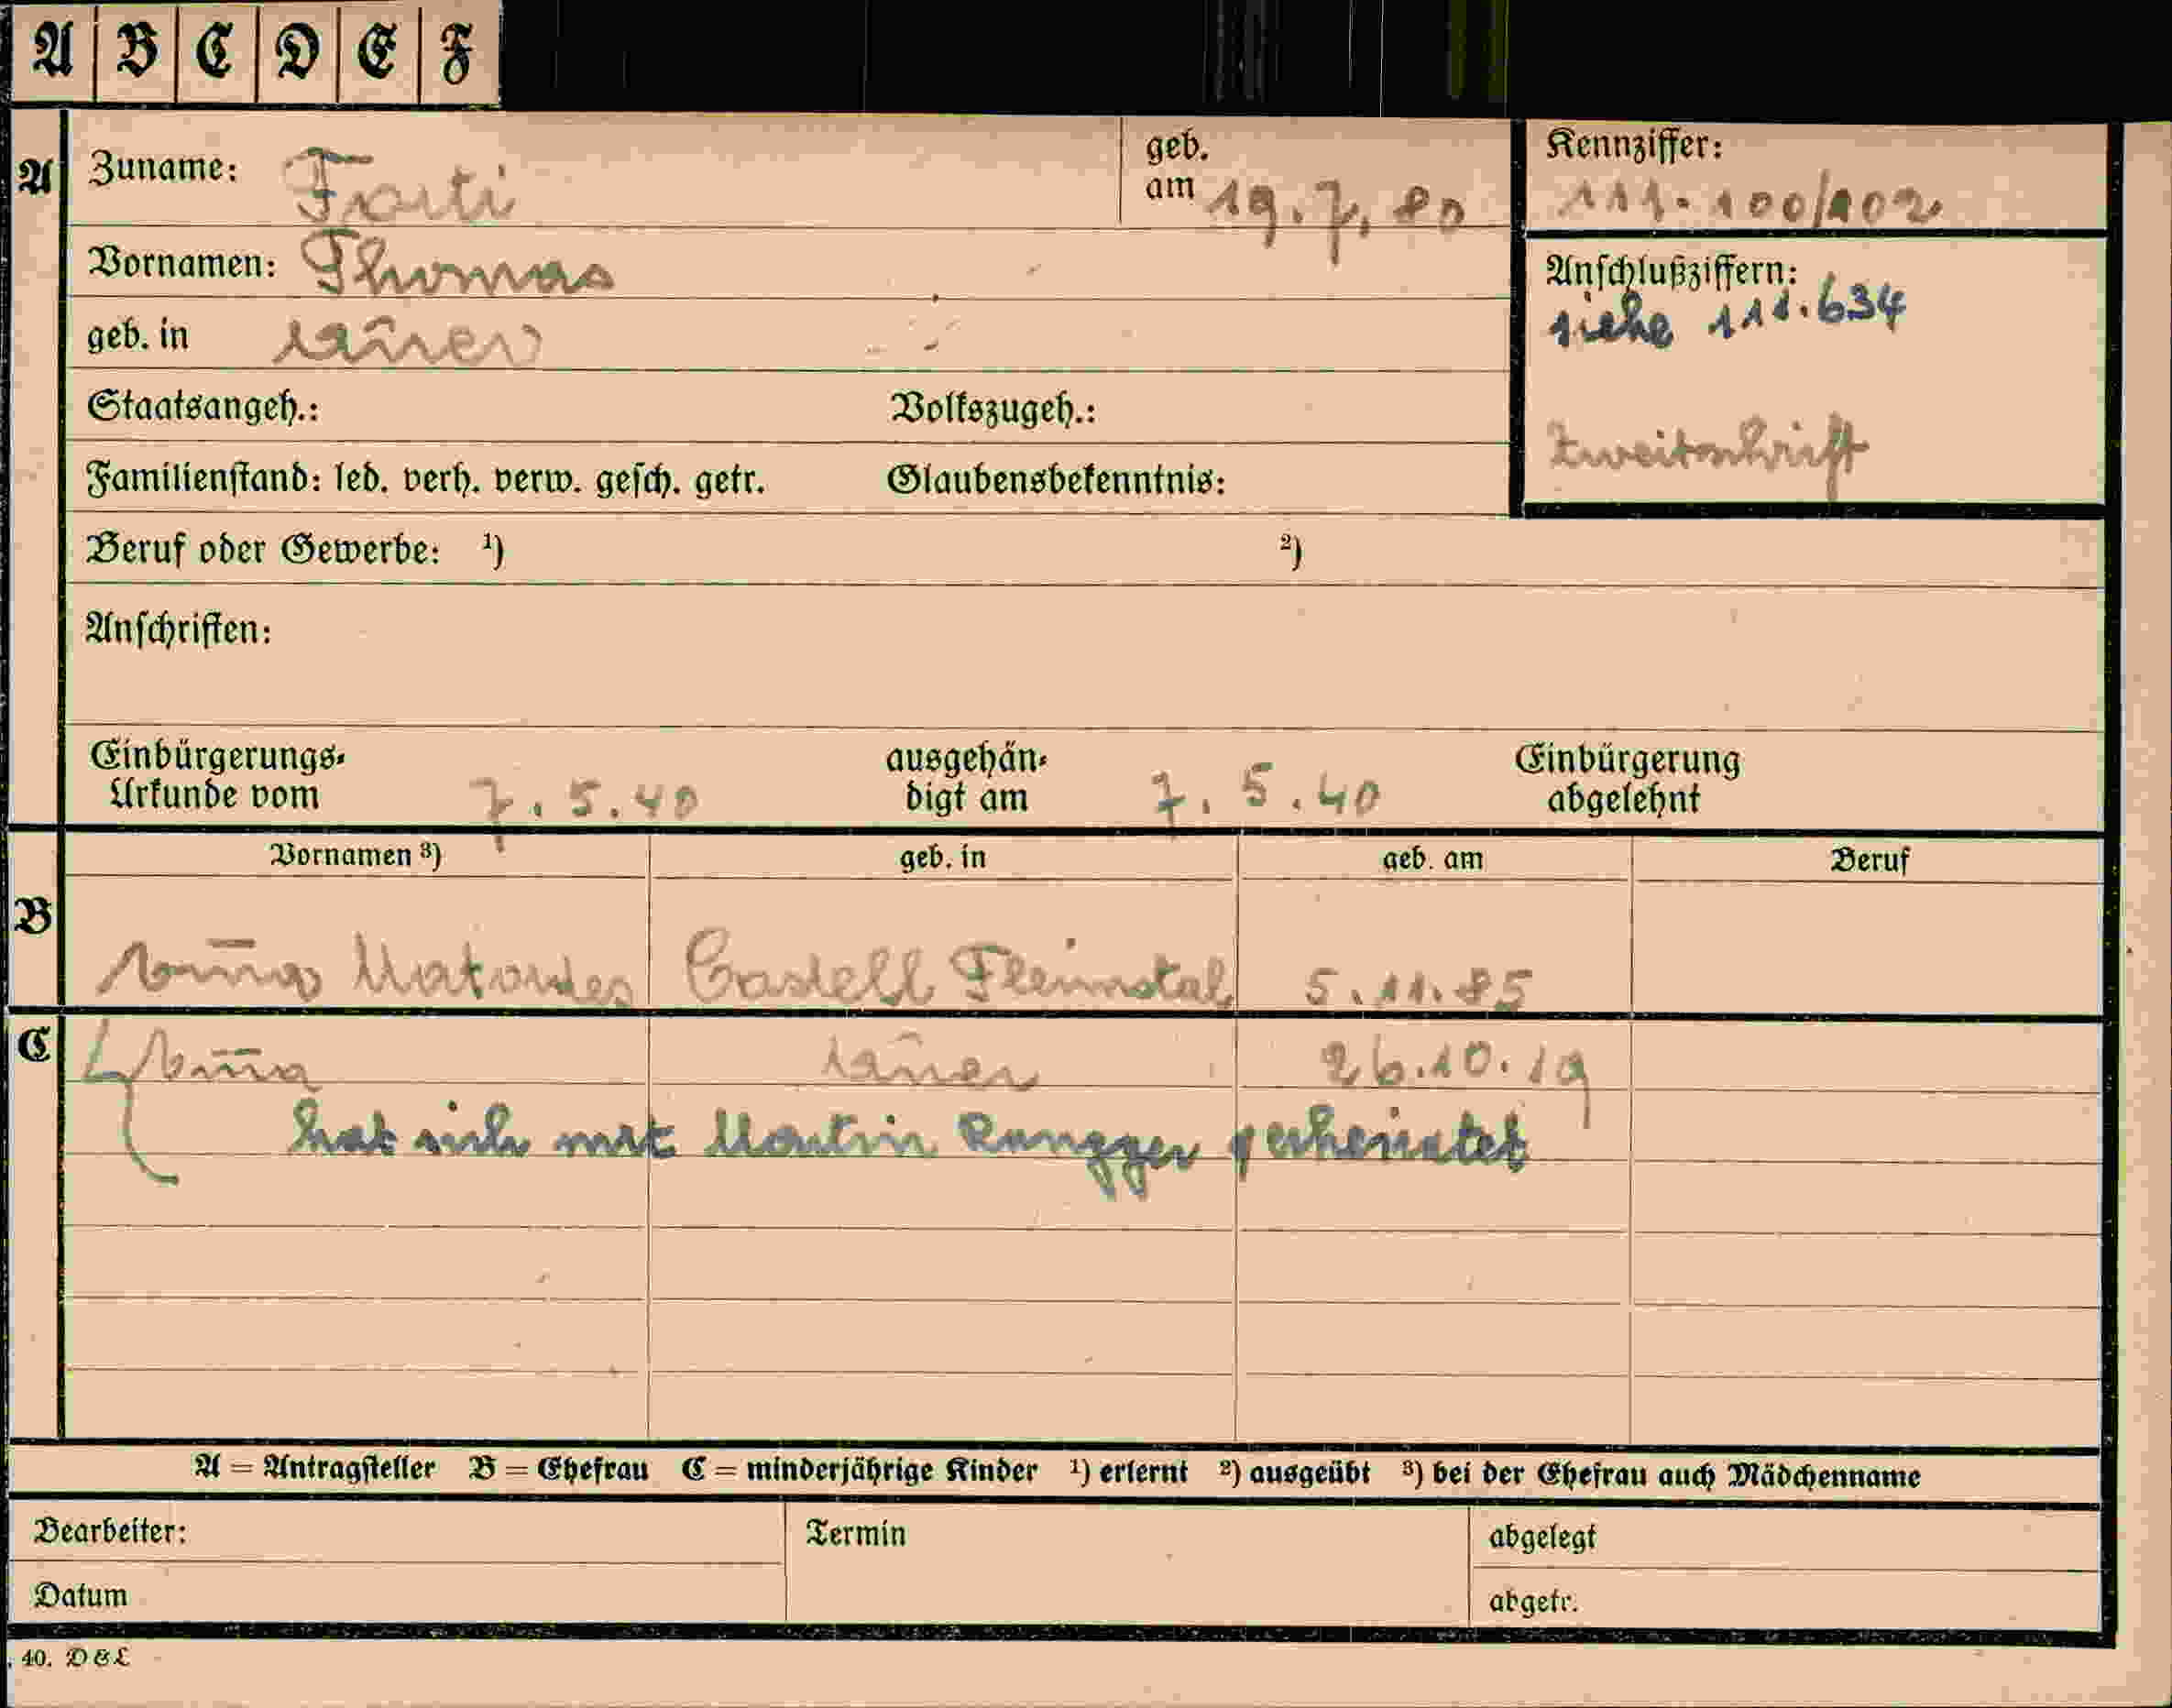 A B C D E F
A
Zuname: Forti
geb. am 19.7.80
Kennziffer: 111.100/102
Vornamen: Thomas
Anschlußziffern: siehe 111.634
geb. in
Staatsangeh.: Volkszugeh.:
Zweitschrift
Familienstand: led. verh. verw. gesch. getr. Glaubensbekenntnis:
Beruf oder Gewerbe: ¹) ²)
Anschriften:
Einbürgerungs-Urkunde vom 7.5.40 ausgehändigt am 7.5.40 Einbürgerung abgelehnt
Vornamen ³) geb. in geb. am Beruf
B
Castell Fleimstal 5.11.85
C
26.10.19
hat sich mit Martin Rungger verheiratet
A = Antragsteller B = Ehefrau C = minderjährige Kinder ¹) erlernt ²) ausgeübt ³) bei der Ehefrau auch Mädchenname
Bearbeiter: Termin abgelegt
Datum abgetr.
40. D & L